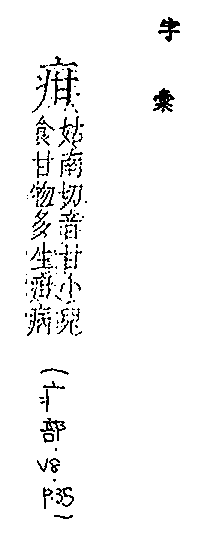 字彙
疳
姑南切音甘小兒
食甘物多生疳病
(疒部.V8.P.35)